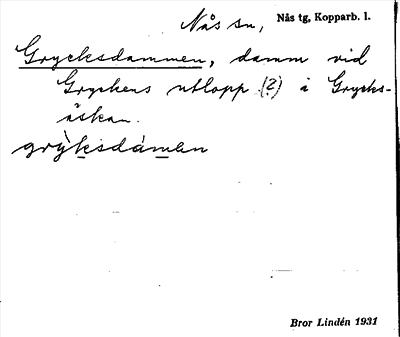 Nås sn, Nås tg, Kopparb. l.
Grycksdammen, damm vid
Gryckens utlopp (?) å Grycks-
åskan.
grỳksdámen
Bror Lindén 1931